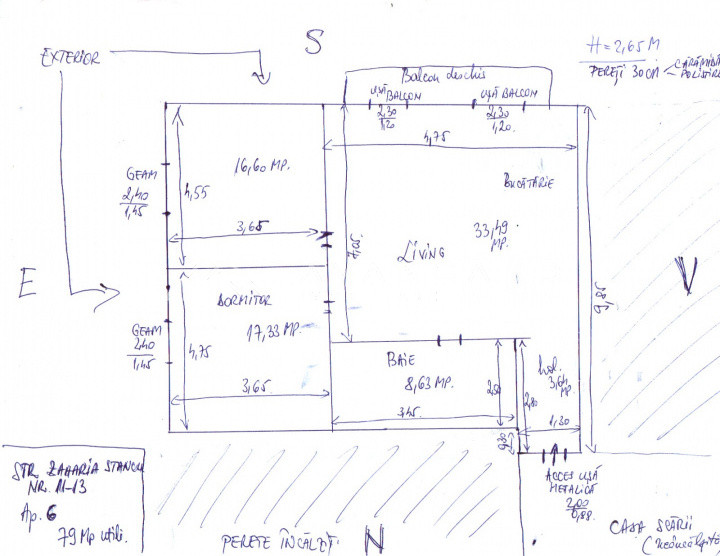 S
EXTERIOR
H = 2,65 M
PEREȚI 30 CM
Balcon deschis
UȘĂ BALCON
2,30
1,20
UȘĂ BALCON
2,30
1,20.
4,75
16,60 MP.
GEAM
2,40
1,45
4,55
3,65
BUCĂTĂRIE
33,49 MP.
LIVING
7,05
9,85
E
V
DORMITOR
17,33 MP.
GEAM
2,40
1,45
4,75
3,65
BAIE
8,63 MP.
2,50
3,45
hol.
3,64 MP.
2,80
1,30
0,30
STR ZAHARIA STANCU
NR. 11-13
Ap. 6
79 Mp utili.
PERETE ÎNCĂLZIT
N
ACCES UȘĂ
METALICĂ
2,00
0,88.
CASA SCĂRII